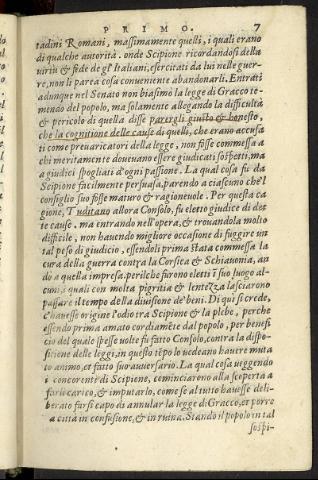 PRIMO. 7
tadini Romani, massimamente quelli, i quali erano
di qualche autorità. onde Scipione ricordandosi della
virtù & fede de gl' Italiani, esercitati da lui nelle guer-
re, non li parea cosa conueniente abandonarli. Entrati
adunque nel Senato non biasimo la legge di Gracco te-
mendo del popolo, ma solamente allegando la difficultà
& pericolo di quella disse parergli giusto & honesto,
che la cognitione delle cause di quelli, che erano accusa
ti come preuaricatori della legge, non fosse commessa a
chi meritamente doueuano essere giudicati sospetti, ma
a giudici spogliati d'ogni passione. La qual cosa fu da
Scipione facilmente persuasa, parendo a ciascuno che'l
consiglio suo fosse maturo & ragioneuole. Per questa ca
gione, Tuditano allora Consolo, fu eletto giudice di det
te cause. ma entrando nell'opera, & trouandola molto
difficile, non hauendo migliore occasione di fuggire un
tal peso di giudicio, essendoli prima stata commessa la
cura della guerra contra la Corsica & Schiauonia, an
dò a quella impresa. perilche furono eletti i suo luogo al-
cuni, i quali con molta pigritia & lentezza lasciarono
passare il tempo della diuisione de' beni. Di qui si crede,
c'hauesse origine l'odio tra Scipione & la plebe, perche
essendo prima amato cordiamēte dal popolo, per benefi
cio del quale spesse uolte fu fatto Consolo, contra la dispo-
sitione delle leggi, in questo tēpo lo uedeano hauere muta
to animo, et fatto suo auuersario. La qual cosa ueggendo
i concorrenti di Scipione, cominciarono alla scoperta a
farli carico, & imputarlo, come se al tutto hauesse deli-
berato farsi capo di annular la legge di Gracco, et porre
a città in confusione, & in ruina. Stando il popolo in tal
sospi-